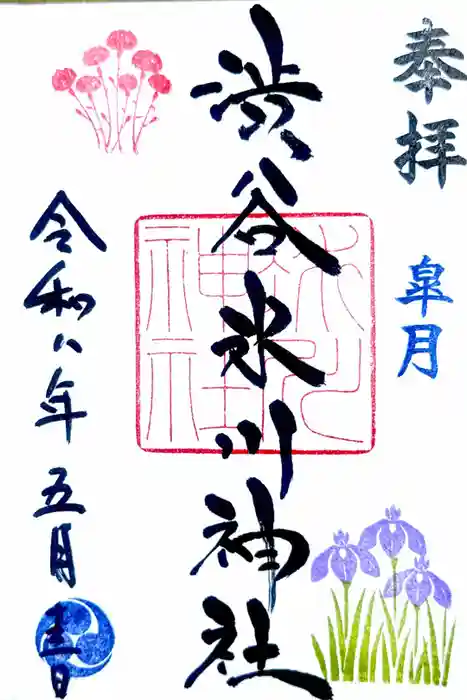 奉拝
皐月
渋谷氷川神社
氷川
神社
令和八年五月吉日